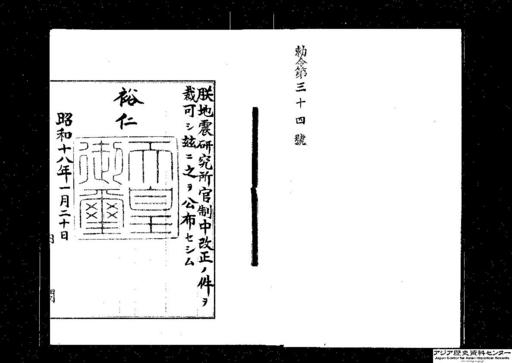 勅令第三十四號
朕地震研究所官制中改正ノ件ヲ
裁可シ玆ニ之ヲ公布セシム
裕仁
天皇
御璽
昭和十八年一月二十日
アジア歴史資料センター
Japan Center for Asian Historical Records